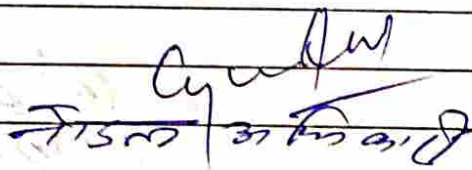 नोडल अधिकारी